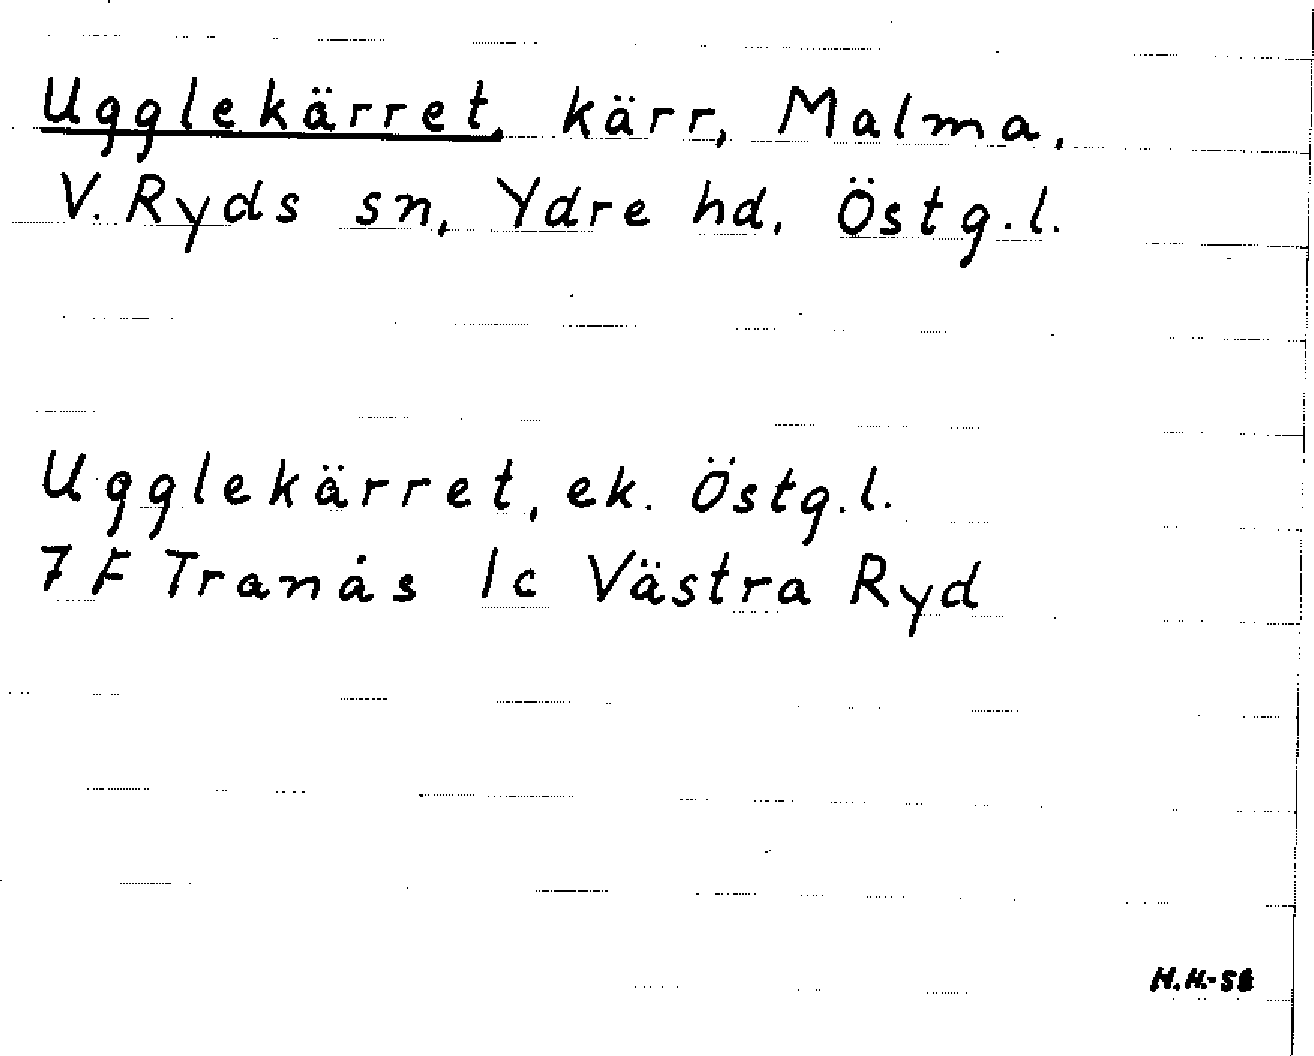 Ugglekärret, kärr, Malma,
V. Ryds sn, Ydre hd, Östg.l.
Ugglekärret, ek. Östg.l.
7 F Tranås 1c Västra Ryd